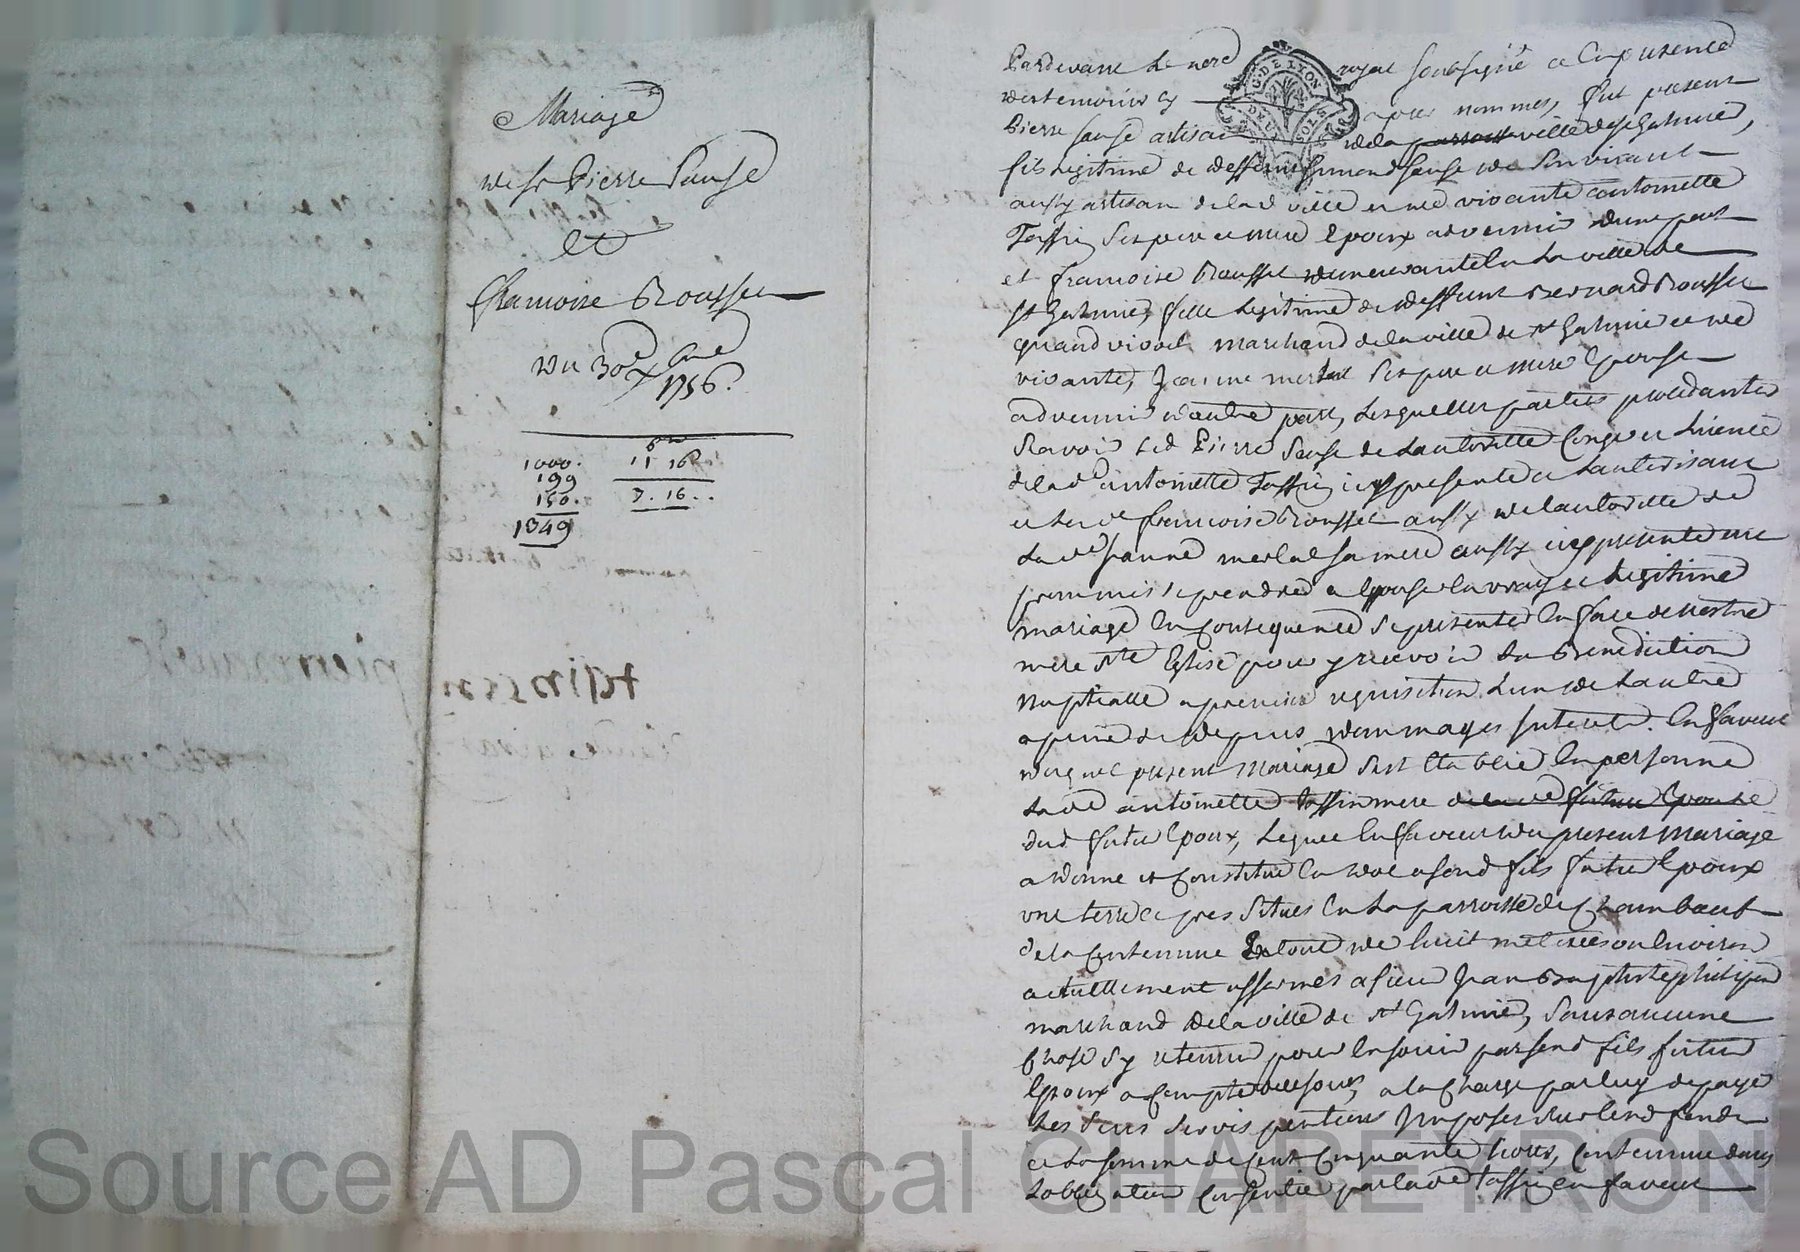 Mariage
de sr Pierre Sause
et
francoise Brousset
Du 30e
1756.
1000.
199
150.
1349
11 16
3. 16..
Pardevant le nore royal soubsigné et En presence
des temoins cy apres nommes, fut present
Pierre Sause artisan de la parroisse ville de st Galmier,
fils legitime de deffunt simond Sause de son vivant
aussy artisan de lad ville et de vivante antoinette
Tassin ses pere et mere Epoux advenir d'une part
et francoise Brousset demeurante En la ville de
st Galmier, fille legitime de deffunt Bernard Brousset
quand vivoit marchand de la ville de st Galmier et de
vivante, Jeanne merlat ses pere et mere Epouse
advenir d'autre part, lesquelles parties procedantes
scavoir led Pierre Sause de l'autoritte Conge et licence
de lad antoinette Tassin icy presente et l'autorisant
et lad francoise Brousset aussy de l'autoritté de
lad Jeanne merlat sa mere aussy icy presente ont
promis se prendre et Epouser en vray et legitime
mariage En consequence se presenter En face de nostre
mere ste Eglise pour y recevoir la Benediction
nuptialle a premiere requisition l'un de l'autre
a peine de depens dommages Interets. En faveur
duquel present Mariage s'est Etablie En personne
lad antoinette Tassin mere de lad future Epouse
dud futur Epoux, lequel En faveur du present Mariage
a donné et Constitué En dot a sond fils futur Epoux
une terre et pres situes En la parroisse de Chambœuf
de la Contenue En tout de huit meterées ou Environ
actuellement affermés a sieur Jean Baptiste philipon
marchand de la ville de st Galmier, sans aucune
Chose s'y retenir pour En jouir par send fils futur
Epoux a Compter de ce jour, a la Charge par luy de payer
les Cens servis pentions Imposes sur lesd fonds
et la somme de Cent Cinquante livres, Contenue dans
l'obligation Consentie par lade Tassin En faveur
Source AD Pascal CHAREYRON